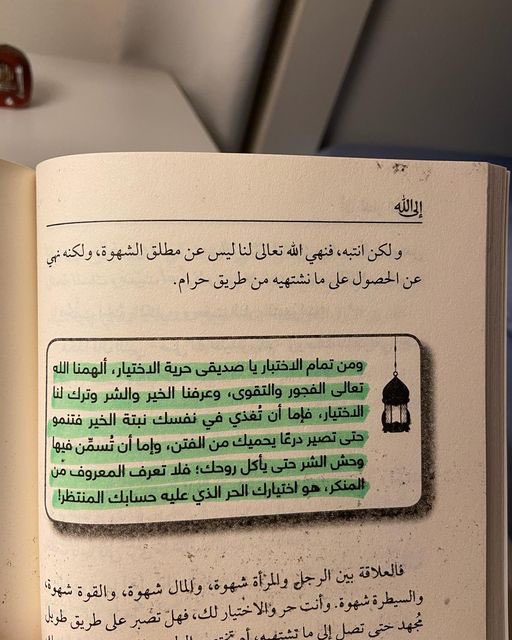 إلى الله
ولكن انتبه، فنهي الله تعالى لنا ليس عن مطلق الشهوة، ولكنه نهي
عن الحصول على ما نشتهيه من طريق حرام.
ومن تمام الاختبار يا صديقي حرية الاختيار، ألهمنا الله
تعالى الفجور والتقوى، وعرفنا الخير والشر وترك لنا
الاختيار، فإما أن تُغذي في نفسك نبتة الخير فتنمو
حتى تصير درعًا يحميك من الفتن، وإما أن تُسمّن فيها
وحش الشر حتى يأكل روحك؛ فلا تعرف المعروف من
المنكر، هو اختيارك الحر الذي عليه حسابك المنتظر!
فالعلاقة بين الرجل والمرأة شهوة، والمال شهوة، والقوة شهوة،
والسيطرة شهوة. وأنت حر والاختيار لك، فهل تصبر على طريق طويل
مُجهد حتى تصل إلى ما تشتهيه، أم